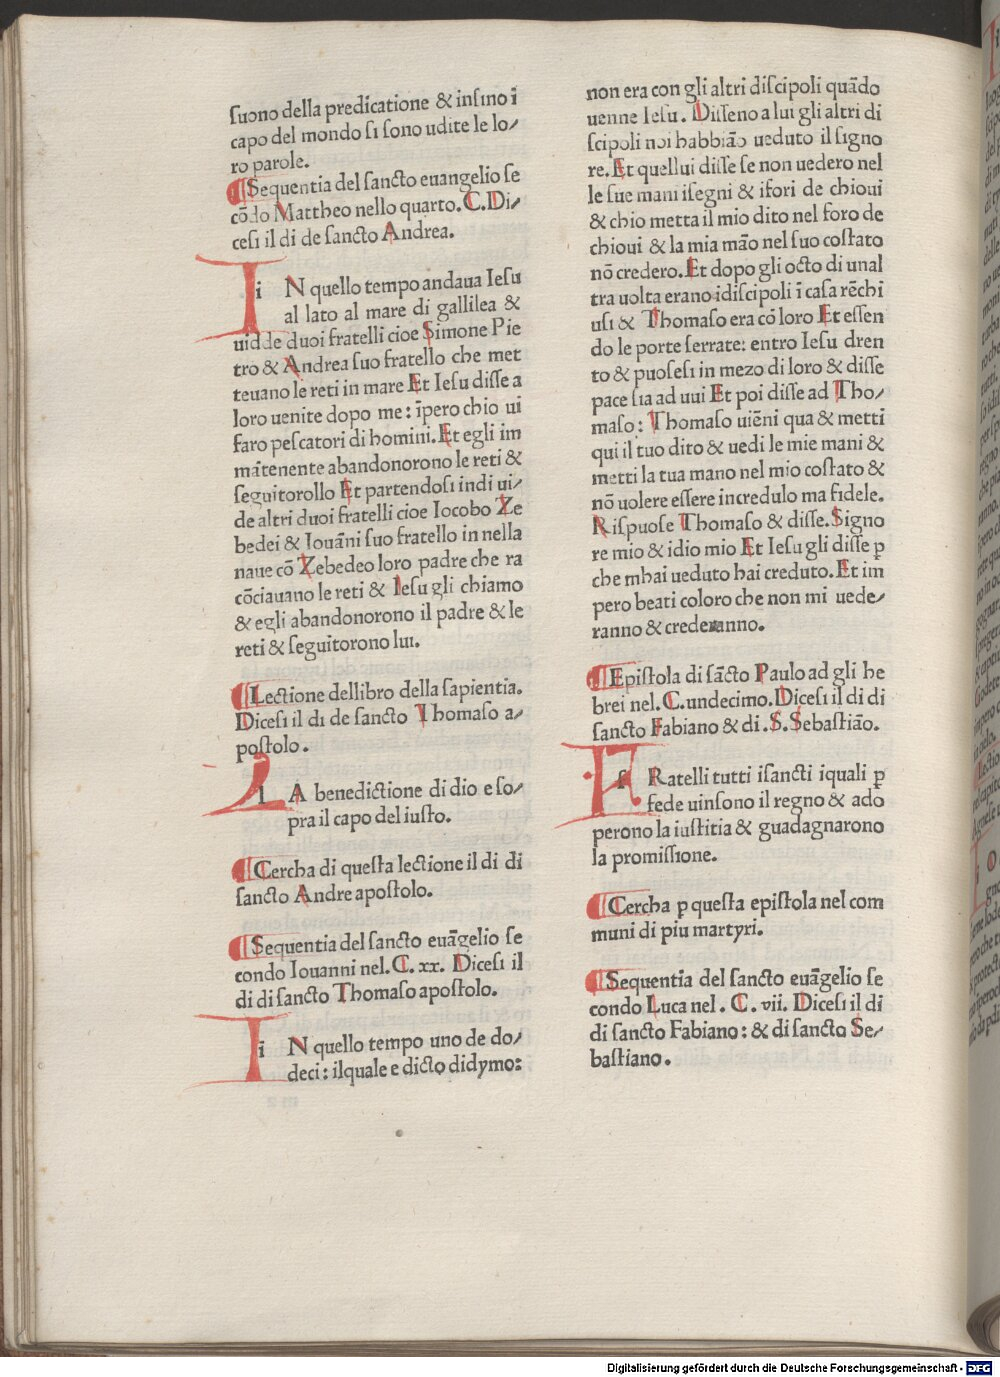 suono della predicatione & insino ĩ
capo del mondo si sono udite le lo/
ro parole.
¶ Sequentia del sancto euangelio se
cõdo Mattheo nello quarto. C. Di/
cesi il di de sancto Andrea.
i N quello tempo andaua Iesu
al lato al mare di gallilea &
uidde duoi fratelli cioe Simone Pie
tro & Andrea suo fratello che met
teuano le reti in mare Et Iesu disse a
loro uenite dopo me: ĩpero chio ui
faro pescatori di homini. Et egli im
mãtenente abandonorono le reti &
seguitorollo Et partendosi indi ui/
de altri duoi fratelli cioe Iocobo Ze
bedei & Iouãni suo fratello in nella
naue cõ Zebedeo loro padre che ra
cõciauano le reti & Iesu gli chiamo
& egli abandonorono il padre & le
reti & seguitorono lui.
¶ Lectione dellibro della sapientia.
Dicesi il di de sancto Thomaso a/
postolo.
l A benedictione di dio e so/
pra il capo del iusto.
¶ Cercha di questa lectione il di di
sancto Andre apostolo.
¶ Sequentia del sancto euãgelio se
condo Iouanni nel. C. xx. Dicesi il
di di sancto Thomaso apostolo.
i N quello tempo uno de do/
deci: ilquale e dicto didymo:
non era con gli altri discipoli quãdo
uenne Iesu. Disseno a lui gli altri di
scipoli noi habbião ueduto il signo
re. Et quellui disse se non uedero nel
le sue mani isegni & ifori de chioui
& chio metta il mio dito nel foro de
chioui & la mia mão nel suo costato
nõ credero. Et dopo gli octo di unal
tra uolta erano idiscipoli ĩ casa rẽchi
usi & Thomaso era cõ loro Et essen
do le porte serrate: entro Iesu dren
to & puosesi in mezo di loro & disse
pace sia ad uui Et poi disse ad Tho/
maso: Thomaso uiẽni qua & metti
qui il tuo dito & uedi le mie mani &
metti la tua mano nel mio costato &
nõ uolere essere incredulo ma fidele.
Rispuose Thomaso & disse. Signo
re mio & idio mio Et Iesu gli disse ꝑ
che mhai ueduto hai creduto. Et im
pero beati coloro che non mi uede/
ranno & crederanno.
¶ Epistola di sãcto Paulo ad gli he
brei nel. C. undecimo. Dicesi il di di
sancto Fabiano & di. S. Sebastião.
f Ratelli tutti isancti iquali ꝑ
fede uinsono il regno & ado
perono la iustitia & guadagnarono
la promissione.
¶ Cercha ꝑ questa epistola nel com
muni di piu martyri.
¶ Sequentia del sancto euãgelio se
condo Luca nel. C. vii. Dicesi il di
di sancto Fabiano: & di sancto Se/
bastiano.
Digitalisierung gefördert durch die Deutsche Forschungsgemeinschaft - DFG